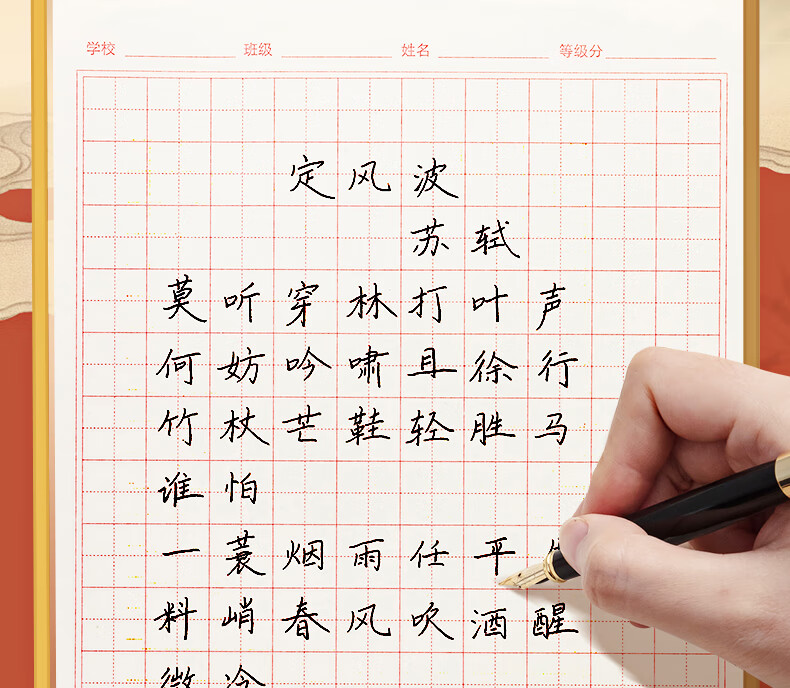 学校 班级 姓名 等级分
定风波
苏轼
莫听穿林打叶声
何妨吟啸且徐行
竹杖芒鞋轻胜马
谁怕
一蓑烟雨任平
料峭春风吹酒醒
微冷